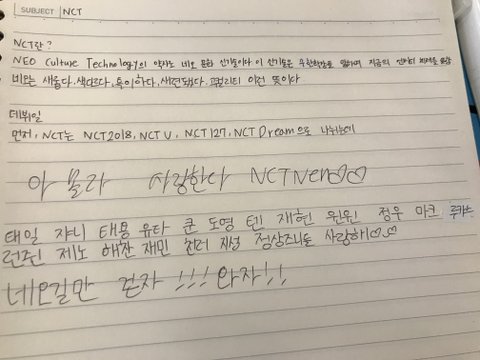 SUBJECT NCT
NCT란?
NEO Culture Technology의 약자로 네오 문화 기술이다. 이 신기술은 무한확장을 말하며 지금의
네오는 새롭다. 색다르다. 특이하다. 세련됐다. 퀄리티 이런 뜻이다
데뷔일
먼저, NCT는 NCT2018, NCT U, NCT127, NCT Dream으로 나뉘는데
아 몰라 사랑한다 NCT Nen♡♡
태일 쟈니 태용 유타 쿤 도영 텐 재현 윈윈 정우 마크 루카스
런쥔 제노 해찬 재민 천러 지성 사랑해♡♡
네오길만 걷자 !!! 와자!!